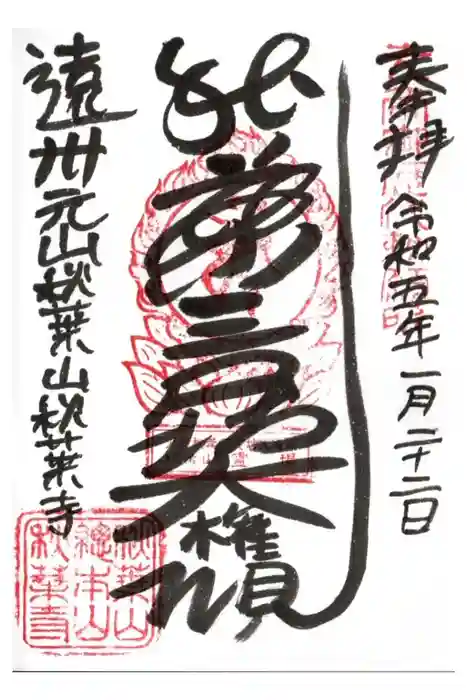 奉拝 令和五年一月二十二日
秋葉三尺坊大権現
遠州元山秋葉山秋葉寺
秋葉山
總本山
秋葉寺